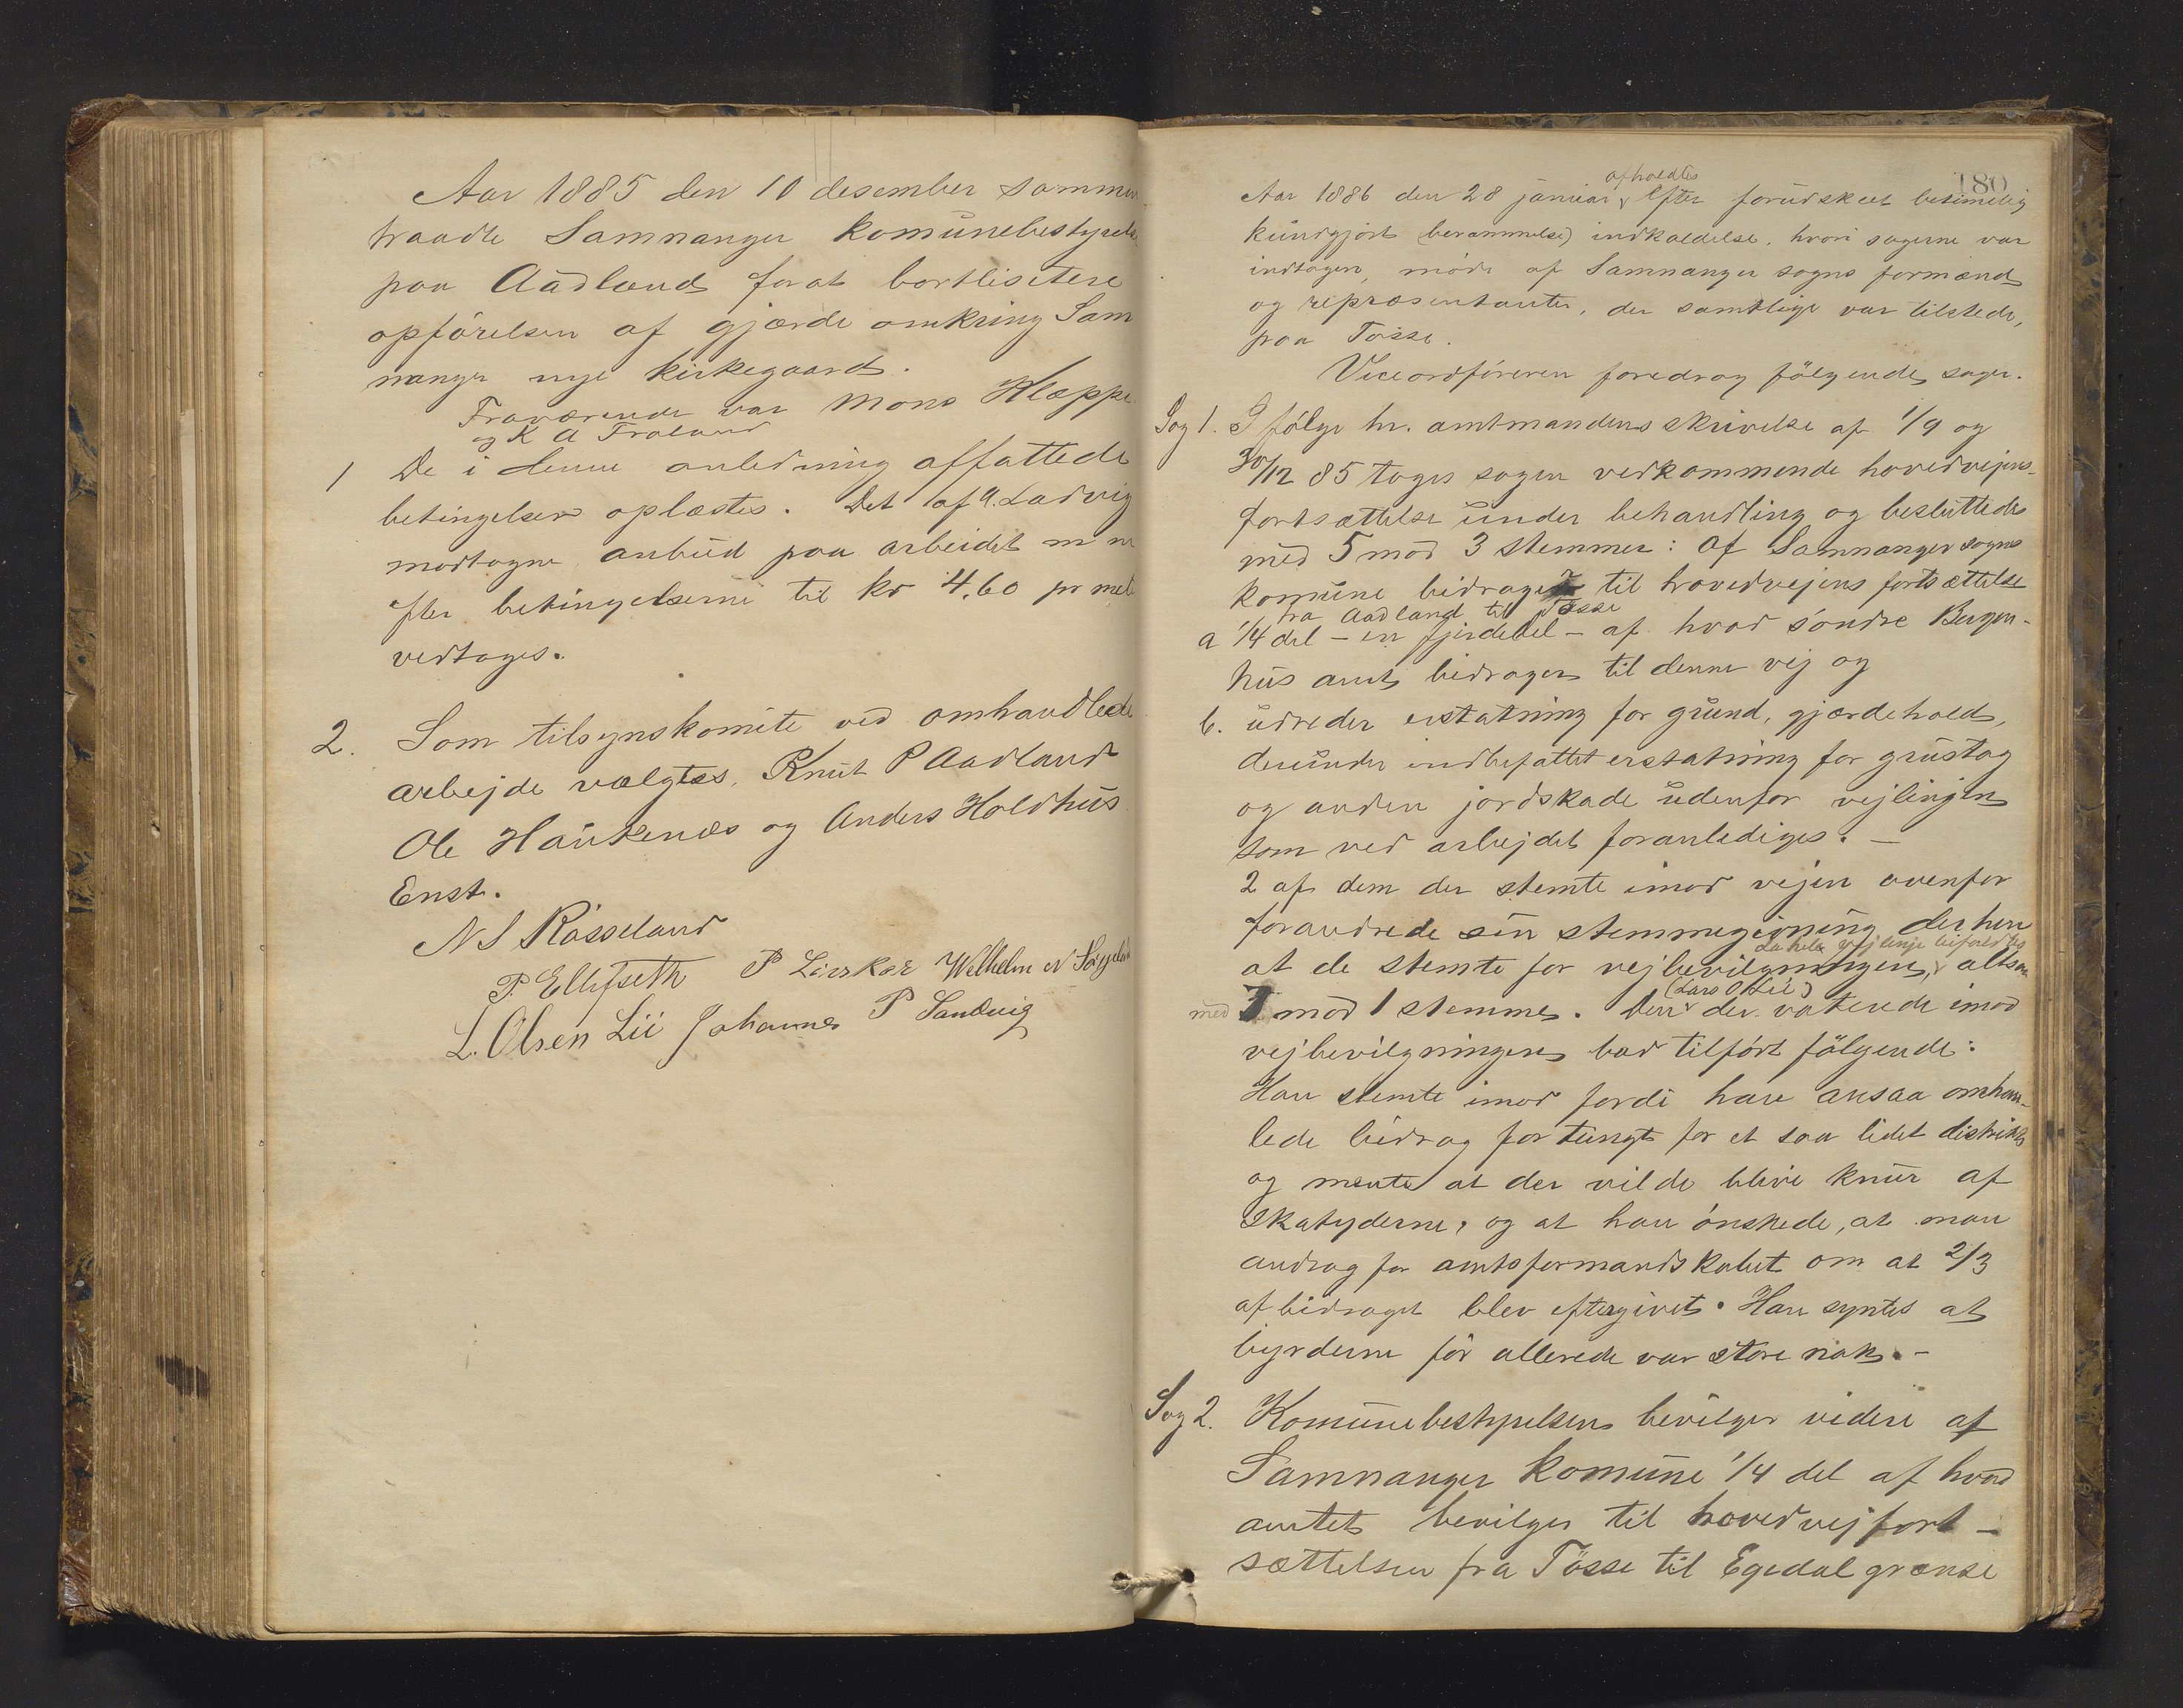 Aar 1885 den 10 desember sammen
traadte Samnanger komunebestyrelse
paa Aadland forat bortlisitere
opförelsen af gjærde omkring Sam
nanger nye kirkegaard.
Fraværende var Mons Kleppe
og K A Fraland
1 De i denne anledning affattede
betingelser oplæstes. Det af A. Ladvig
modtagne anbud paa arbeidet m m
efter betingelserne til kr 4,60 pr met
vedtages.
2. Som tilsynskomite ved omhandlede
arbejde vælgtes. Knut P Aadland
Ole Haukenæs og Anders Holdhus
Enst.
N S Rösseland
P. Ellefseth P Liarkar Wilhelm N
L. Olsen Lii Johannes P Sandvig
180
afholdtes
Aar 1886 den 28 januar, efter forudskeet betimelig
kundgjort (berammelse) indkaldelse, hvori sagerne var
indtagen, möde af Samnanger sogns formænd
og repræsentanter, der samtlige var tilstede,
paa Tösse.
Viceordföreren foredrog fölgende sager.
Sag 1. I fölge hr. amtmandens skrivelse af 1/9 og
30/12 85 toges sagen vedkommende hovedvejens
fortsættelse under behandling og besluttedes
med 5 mod 3 stemmer: Af Samnanger sogns
komune bidrages til hovedvejens fortsættelse
fra Aadland til Tösse
a 1/4 del – en fjerdedel – af hvad söndre Bergen-
hus amt bidrager til denne vej og
b. udreder erstatning for grund, gjærdehold,
derunder indbefattet erstatning for grustag
og anden jordskade udenfor vejlinjen
som ved arbejdet foranlediges. –
2 af dem der stemte imod vejen ovenfor
forandrede sin stemmegivning derhen
da hele vejlinje
at de stemte for vejbevilgningen, altsaa
(Lars O. Lii)
med 7 mod 1 stemme. Den der voterede imod
vejbevilgningen bad tilfört fölgende:
Han stemte imod fordi han ansaa omhan-
lede bidrag for tungt for et saa lidet distrikt
og mente at der vilde blive knur af
skatyderne, og at han önskede, at man
androg for amtsformandskabet om at 2/3
af bidraget blev eftergivet. Han syntes at
byrderne för allerede var store nok. –
Sag 2. Komunebestyrelsen bevilger videre af
Samnanger komune 1/4 del af hvad
amtet bevilger til hovedvejfort-
sættelsen fra Tösse til Egedal grænse